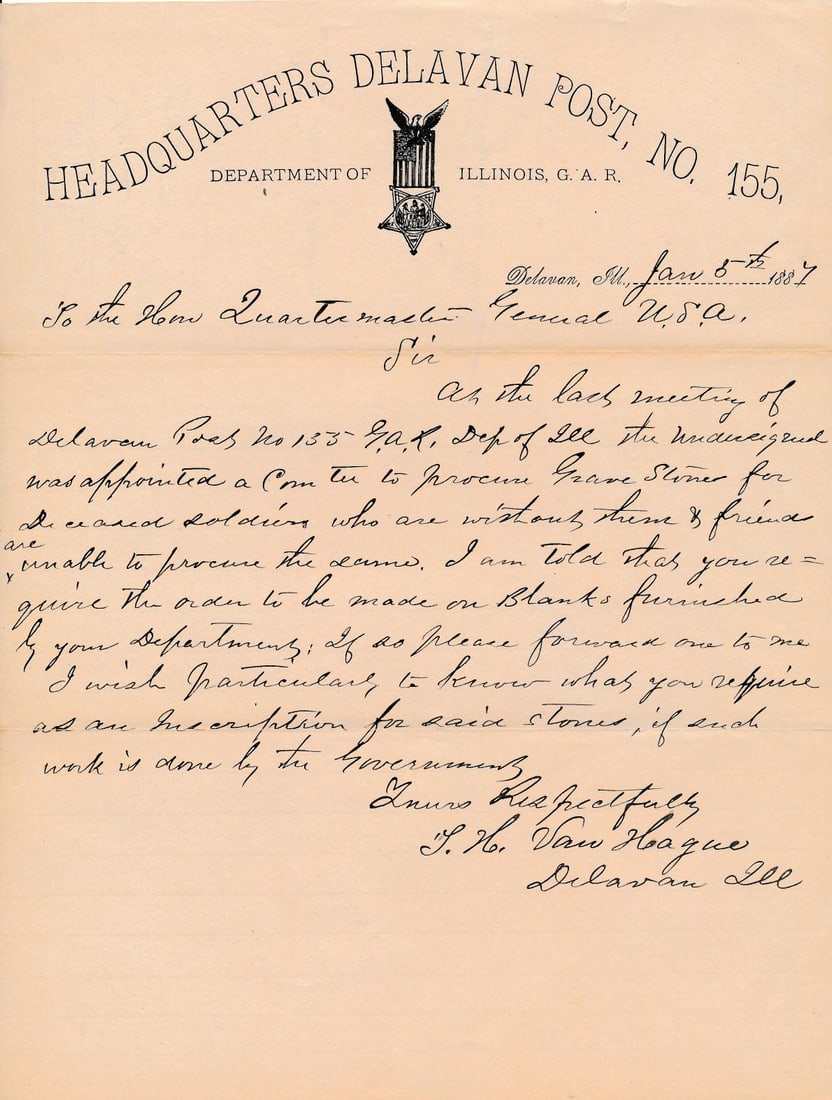 HEADQUARTERS DELAVAN POST, NO. 155,
DEPARTMENT OF ILLINOIS, G. A. R.
Delavan, Ill., Jan 5th 1887
To the Hon Quartermaster General U.S.A.
Sir
At the last meeting of
Delavan Post No 155 G.A.R. Dep of Ill the undersigned
was appointed a Comtee to procure Grave Stones for
Deceased soldiers who are without them & friends
are
x unable to procure the same. I am told that you re=
quire the order to be made on Blanks furnished
by your Department; If so please forward one to me
I wish particularly to know what you require
as an Inscription for said stones, if such
work is done by the Government
Yours Respectfully
T. H. Van Hague
Delavan Ill